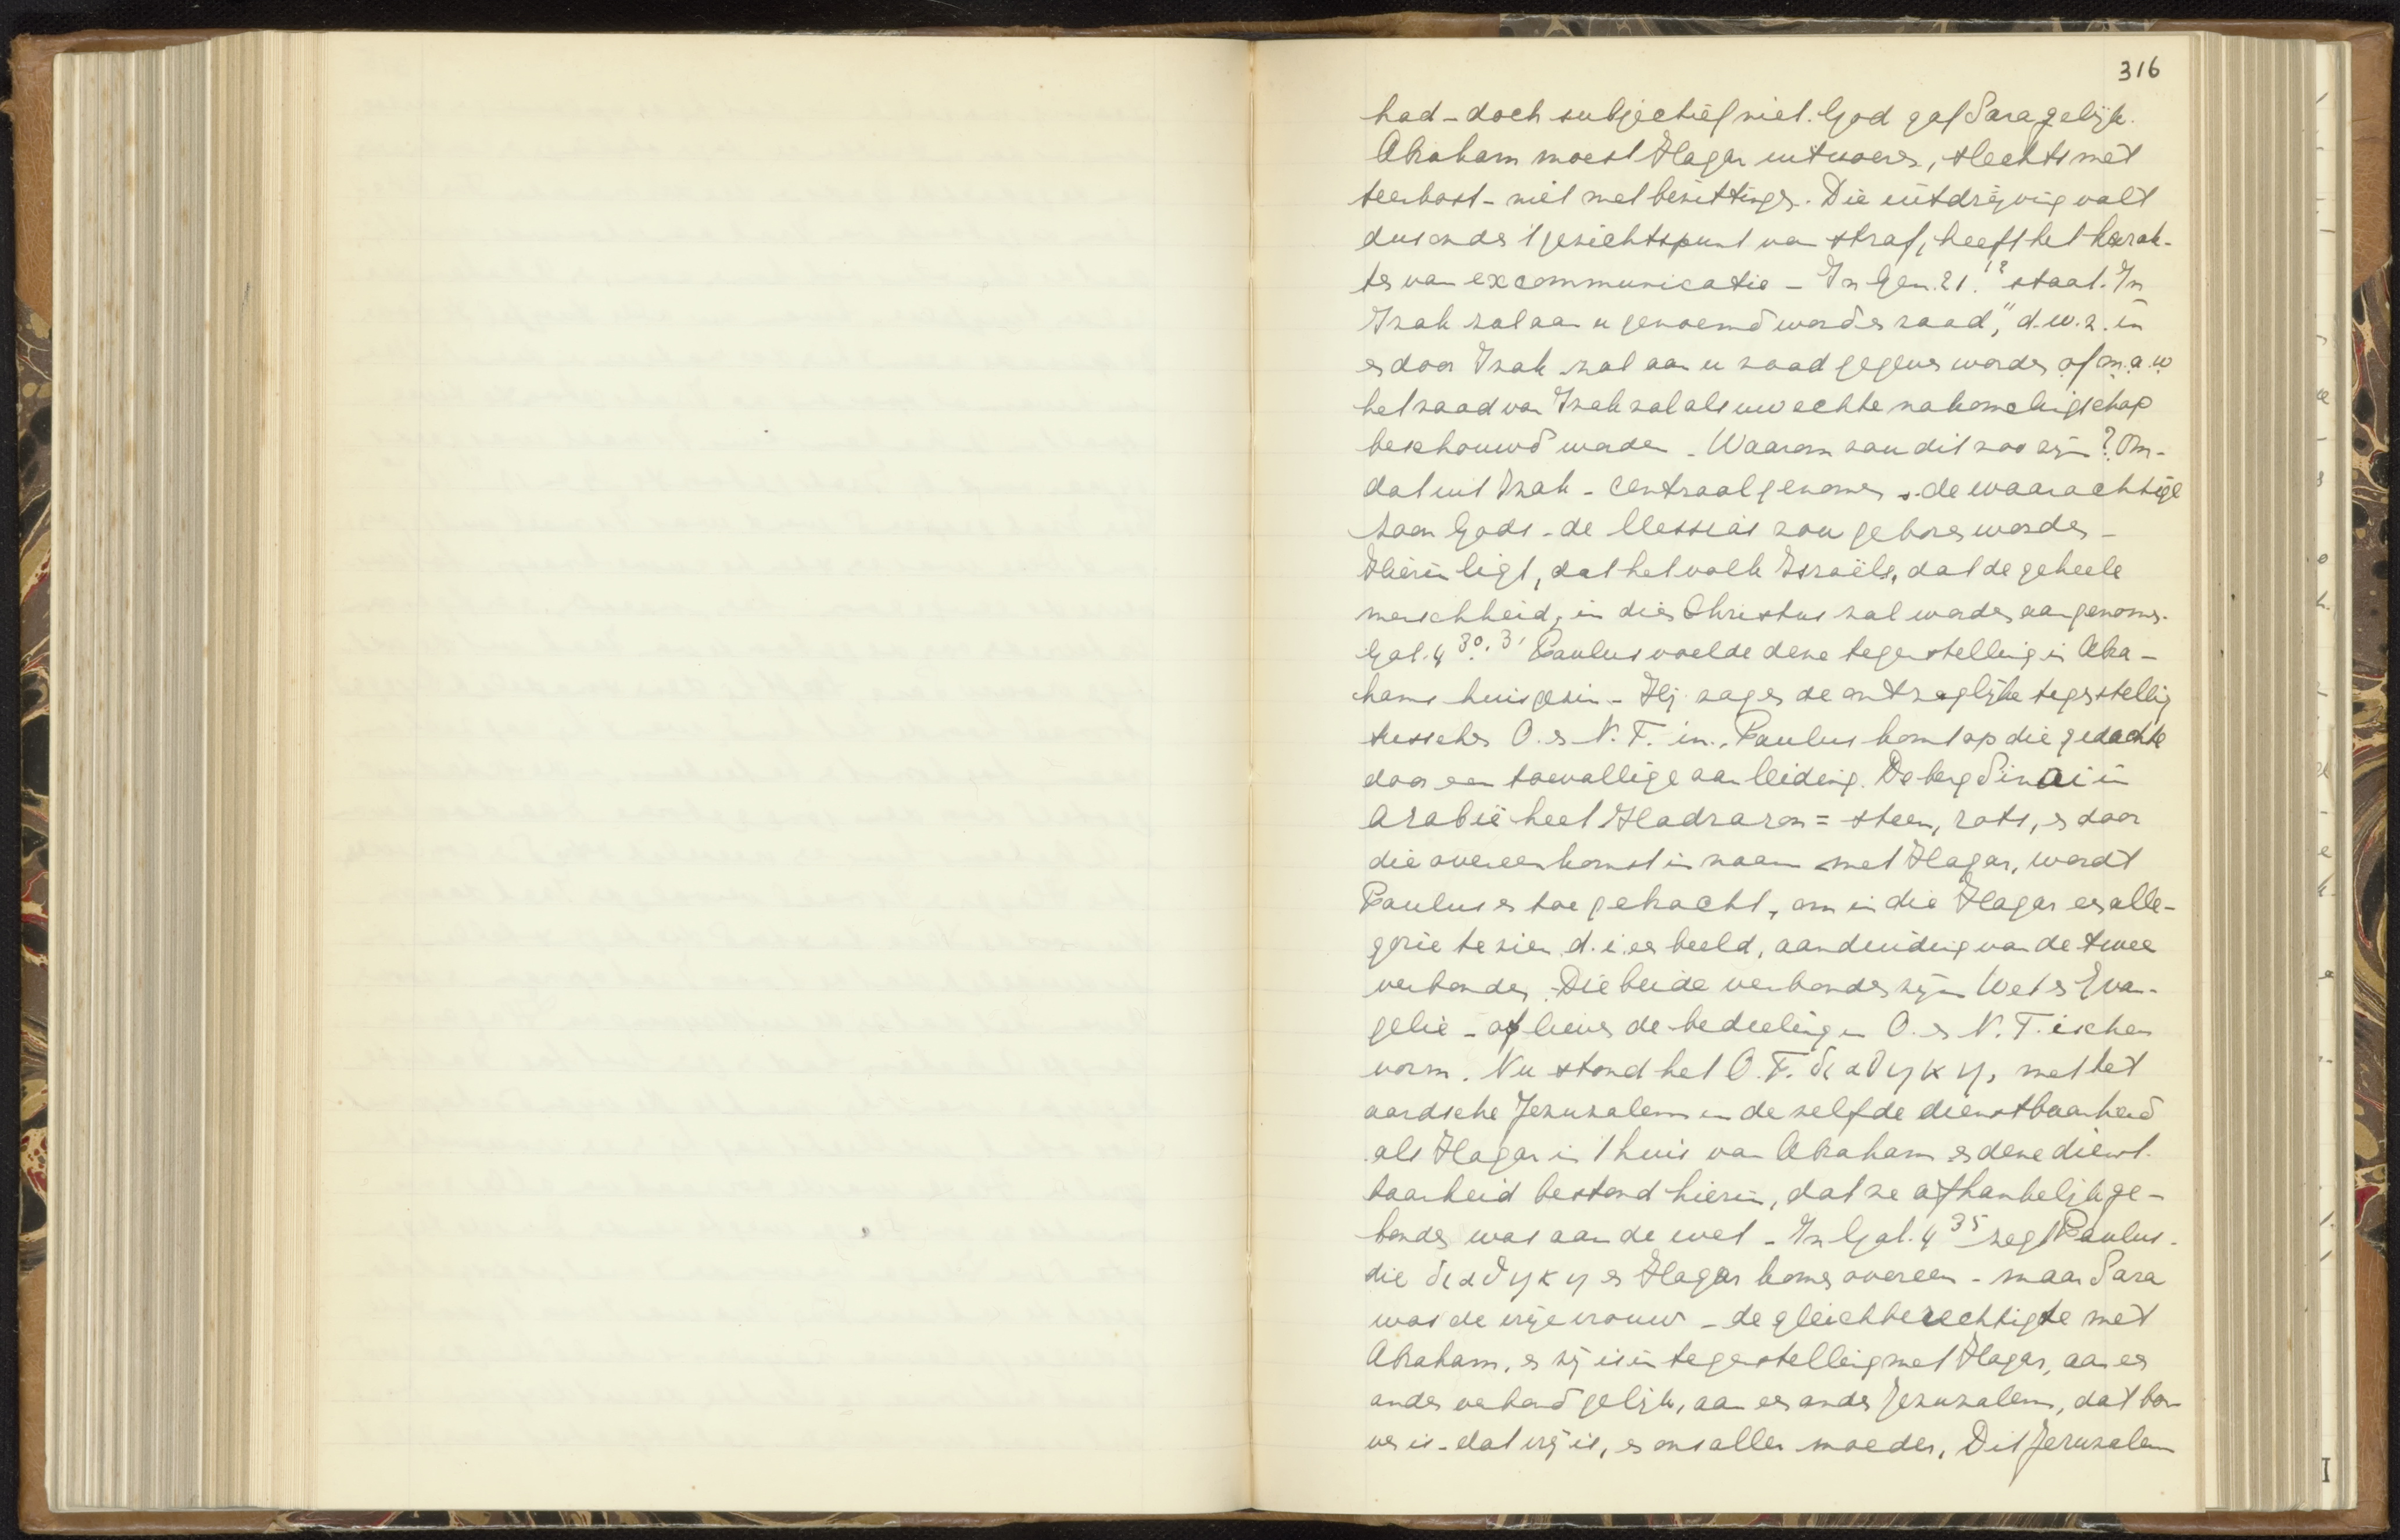 316
had - doch subjectief niet. God gaf Sara gelijk.
Abraham moest Hagar uitvoeren, slechts met
teerkost - niet met bezittingen. Die uitdrijving valt
dus onder 't gezichtspunt van straf, heeft het karak-
ter van excommunicatie - In Gen. 21.12 staat. In
Izak zal aan u genoemd worden zaad," d.w.z. in
en door Izak zal aan u zaad gegeven worden of m.a.w
het zaad van Izak zal als uw echte nakomelingschap
beschouwd worden - Waarom zou dit zoo zijn? Om-
dat uit Izak - centraal genomen - de waarachtige
zoon Gods - de Messias zou geboren worden -
Hierin ligt, dat het volk Israëls, dat de geheele
menschheid, in dien Christus zal worden aangenomen.
Gal. 4 30. 31 Paulus voelde deze tegenstelling in Abra-
hams huisgezin - Hij zag er de ontzaglijke tegenstelling
tusschen O. en N. T. in. Paulus komt op die gedachte
door een toevallige aanleiding. De berg Sinai in
Arabië heet Hadraron = steen, rots, en door
die overeenkomst in naam met Hagar, wordt
Paulus er toe gebracht, om in die Hagar en alle-
gorie te zien d.i. en beeld, aanduiding van de twee
verbonden. Die beide verbonden zijn Wet en Evan-
gelie - of liever de bedeeling in O. en N. T. ischen
vorm. Nu stond het O. T. διαθηκη, met het
aardsche Jeruzalem in dezelfde dienstbaarheid
als Hagar in 't huis van Abraham en deze dienst-
baarheid bestond hierin, dat ze afhankelijk ge-
bonden was aan de wet - In Gal. 4 35 zegt Paulus -
die διαθηκη en Hagar komen overeen - maar Sara
was de vrije vrouw - de gleichberechtigte met
Abraham, en zij is in tegenstelling met Hagar, aan en
ander verbond gelijk, aan en ander Jeruzalem, dat bo-
ven is - dat vrij is, en ons aller moeder. Dit Jeruzalem